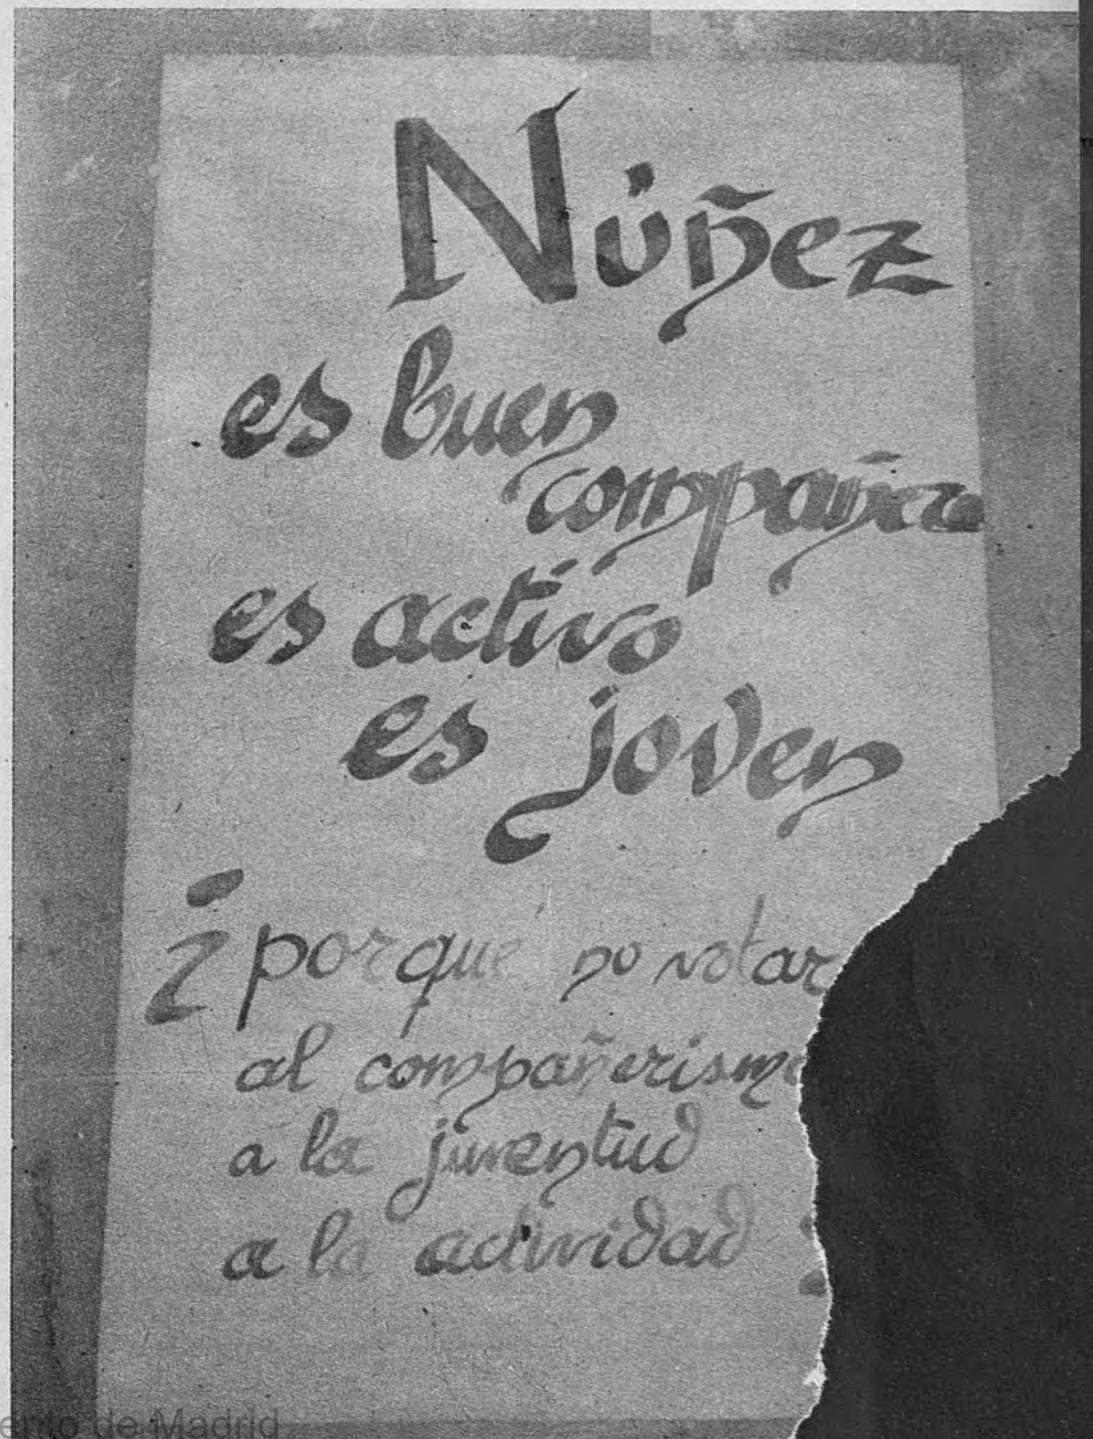 Núñez
es buen
compañero
es activo
es joven
¿porqué no votar
al compañerismo
a la juventud
a la actividad ?
ento de Madrid